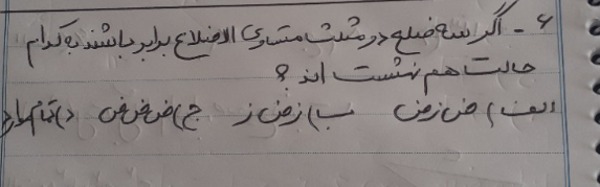 ۶ - اگر سه ضلع دو مثلث متساوی الاضلاع برابر باشند به کدام
حالت هم نهشت اند ؟
الف) ض ز ض ب) ز ض ز ج) ض ض ض د) تمام موارد